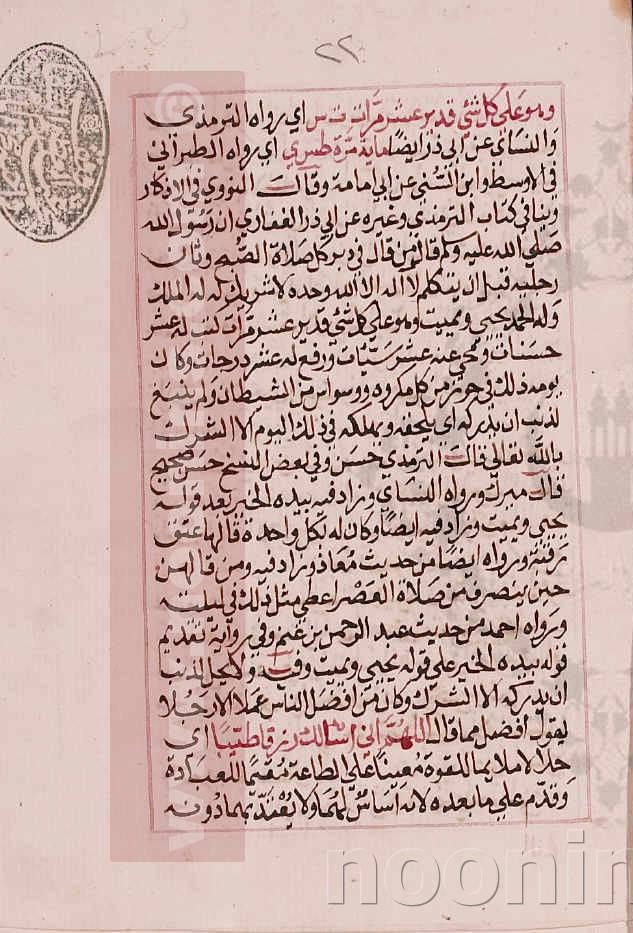 ٢٢
وهو على كل شئ قدير عشر مرات ت س اي رواه الترمذي
والنساي عن ابي ذر ايضا ماية مرة طس ي اي رواه الطبراني
في الاوسط وابن السني عن ابي امامة وقال النووي في الاذكار
روينا في كتاب الترمذي وغيره عن ابي ذر الغفاري ان رسول الله
صلى الله عليه وسلم قال من قال في دبر كل صلاة الصبح وثان
رجليه قبل ان يتكلم لا اله الا الله وحده لا شريك له له الملك
وله الحمد يحيي ويميت وهو على كل شئ قدير عشر مرات كتب له عشر
حسنات ومحي عنه عشر سيئات ورفع له عشر درجات وكان
يومه ذلك في حرز من كل مكروه ووسواس من الشيطان ولم ينبغ
لذنب ان يدركه اي يلحقه ويهلكه في ذلك اليوم الا الشرك
بالله تعالى قال الترمذي حسن وفي بعض النسخ حسن صحيح
قال ميرك ورواه النساي وزاد فيه بيده الخير بعد قوله
يحيي ويميت وزاد فيه ايضا وكان له بكل واحدة قالها عتق
رقبة ورواه ايضا من حديث معاذ وزاد فيه ومن قالهن
حين ينصرف من صلاة العصر اعطي مثل ذلك في ليلته
ورواه احمد من حديث عبد الرحمن بن غنم وفي رواية تقديم
قوله بيده الخير على قوله يحيي ويميت وفيه ولا يحل لذنب
ان يدركه الا الشرك وكان من افضل الناس عملا الا رجلا
يقول افضل مما قال اللهم اني اسالك رزقا طيبا اي
حلالا ملايما للقوة معينا على الطاعة مقيما للعبادة
وقدم على ما بعده لانه اساس لهما ولا يعتد بهما دونه
noonin